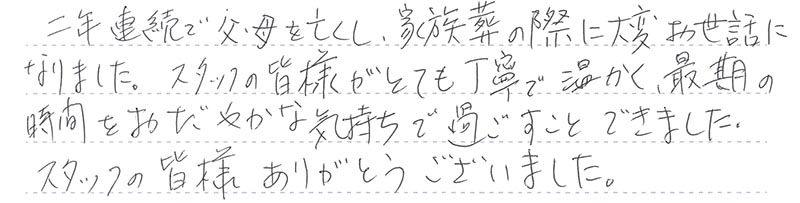 二年連続で父・母を亡くし、家族葬の際に大変お世話に
なりました。スタッフの皆様がとても丁寧で温かく、最期の
時間をおだやかな気持ちで過ごすことできました。
スタッフの皆様ありがとうございました。